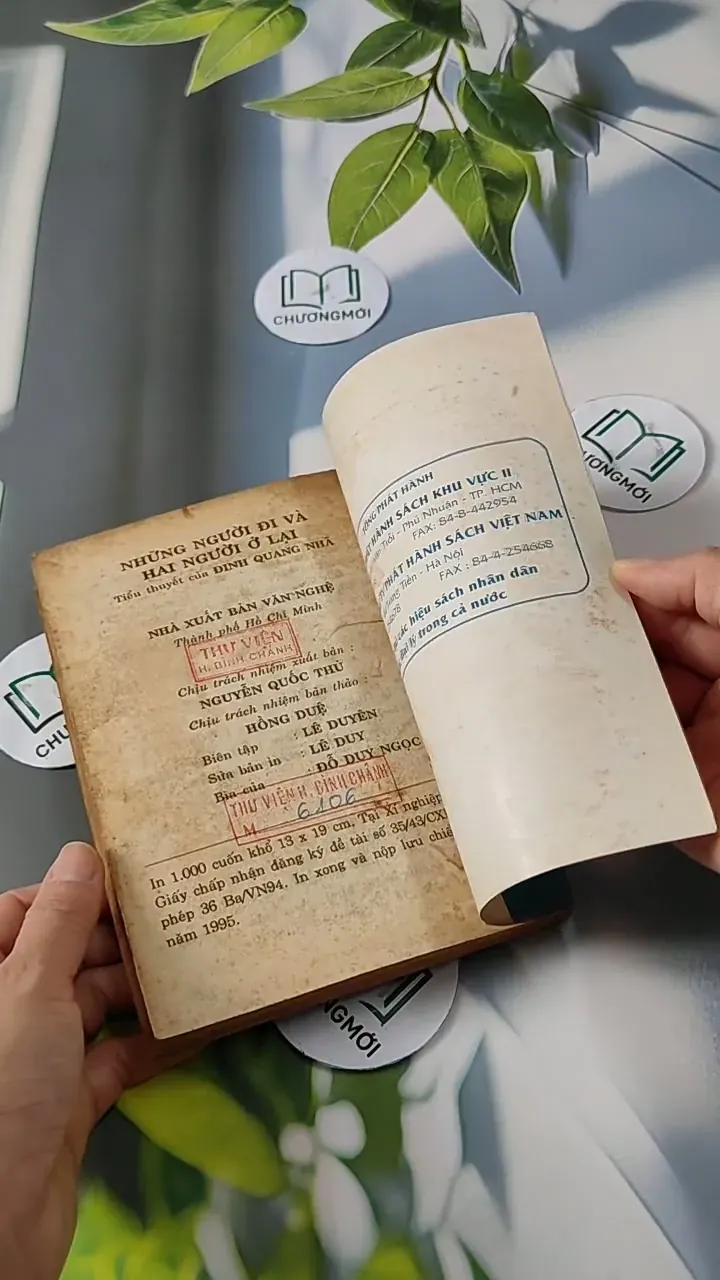 CHƯƠNGMỚI
NHỮNG NGƯỜI ĐI VÀ
HAI NGƯỜI Ở LẠI
Tiểu thuyết của ĐINH QUANG NHÃ
NHÀ XUẤT BẢN VĂN NGHỆ
Thành phố Hồ Chí Minh
THƯ VIỆN
H. BÌNH CHÁNH
Chịu trách nhiệm xuất bản :
NGUYỄN QUỐC THỬ
Chịu trách nhiệm bản thảo :
HỒNG DUỆ
Biên tập : LÊ DUYÊN
Sửa bản in : LÊ DUY
Bìa của : ĐỖ DUY NGỌC
THƯ VIỆN H. BÌNH CHÁNH
M 6106
In 1.000 cuốn khổ 13 x 19 cm. Tại Xí nghiệp
Giấy chấp nhận đăng ký đề tài số 35/43/CX
phép 36 Ba/VN94. In xong và nộp lưu chiể
năm 1995.
PHÁT HÀNH
HÀNH SÁCH KHU VỰC II
Phú Nhuận - TP. HCM
FAX: 84-8-442954
PHÁT HÀNH SÁCH VIỆT NAM
Tiền - Hà Nội
FAX : 84-4-254668
các hiệu sách nhân dân
lý trong cả nước
ƯƠNGMỚI
CHƯ
NGMỚI